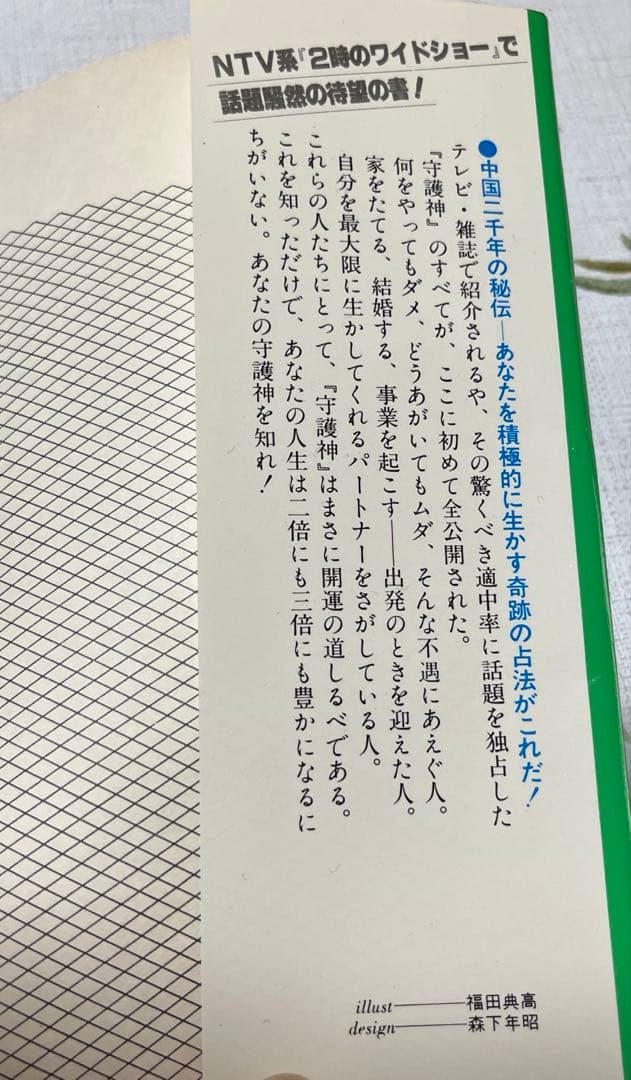 NTV系『2時のワイドショー』で
話題騒然の待望の書！
●中国二千年の秘伝―あなたを積極的に生かす奇跡の占法がこれだ！
テレビ・雑誌で紹介されるや、その驚くべき適中率に話題を独占した
『守護神』のすべてが、ここに初めて全公開された。
何をやってもダメ、どうあがいてもムダ、そんな不遇にあえぐ人。
家をたてる、結婚する、事業を起こす――出発のときを迎えた人。
自分を最大限に生かしてくれるパートナーをさがしている人。
これらの人たちにとって、『守護神』はまさに開運の道しるべである。
これを知っただけで、あなたの人生は二倍にも三倍にも豊かになるに
ちがいない。あなたの守護神を知れ！
illust――福田典高
design――森下年昭